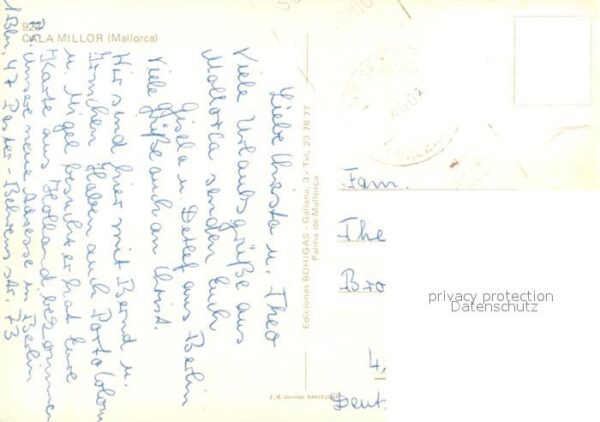 920
CALA MILLOR (Mallorca)
Liebe Christa u. Theo
Viele Urlaubsgrüße aus
Mallorca senden Euch
Gisela u. Detlef aus Berlin
Viele Grüße auch an Christ.
Wir sind hier mit Bernd u.
Irmchen. Haben auch Porto Colom
u. Migel besucht er hat Eure
Karte aus Holland bekommen
unsere neue Adresse in Berlin
1 Bln. 47
Ediciones BOHIGAS - Galiana, 3 - Tel. 23 78 77
Palma de Mallorca
Fam.
The
Bro
4.
Deut
privacy protection
Datenschutz